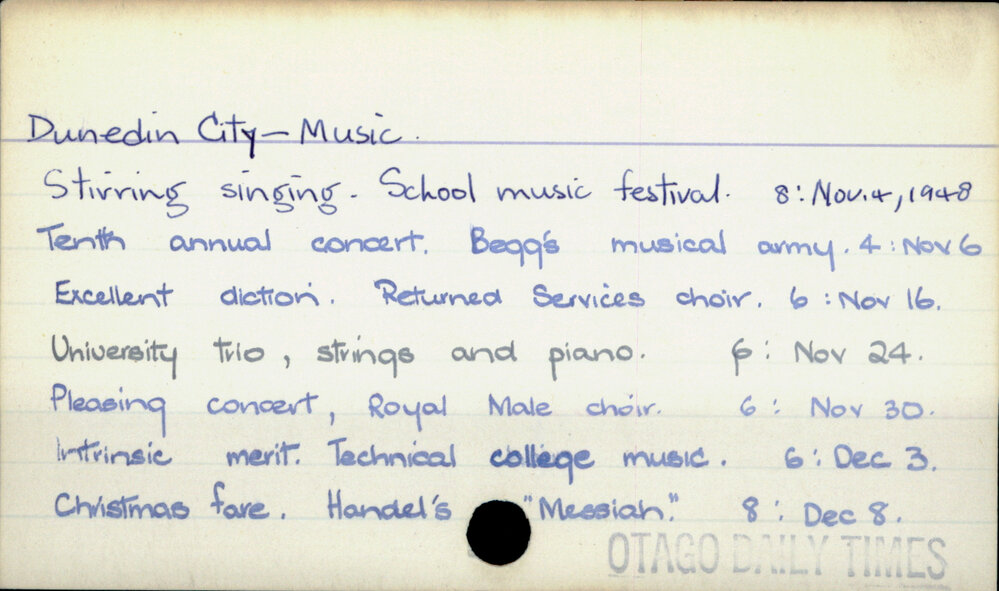 Dunedin City - Music.
Stirring singing. School music festival. 8: Nov. 4, 1948
Tenth annual concert. Begg's musical army. 4: Nov 6
Excellent diction. Returned Services choir. 6: Nov 16.
University trio, strings and piano. 6: Nov 24.
Pleasing concert, Royal Male choir. 6: Nov 30.
Intrinsic merit. Technical college music. 6: Dec 3.
Christmas fare. Handel's "Messiah". 8: Dec 8.
OTAGO DAILY TIMES